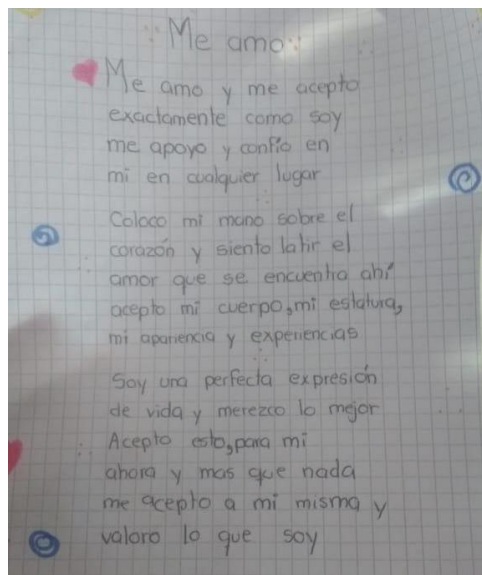 Me amo
Me amo y me acepto
exactamente como soy
me apoyo y confío en
mi en cualquier lugar
Coloco mi mano sobre el
corazón y siento latir el
amor que se encuentra ahí
acepto mi cuerpo, mi estatura,
mi apariencia y experiencias
Soy una perfecta expresión
de vida y merezco lo mejor
Acepto esto, para mi
ahora y mas que nada
me acepto a mi misma y
valoro lo que soy